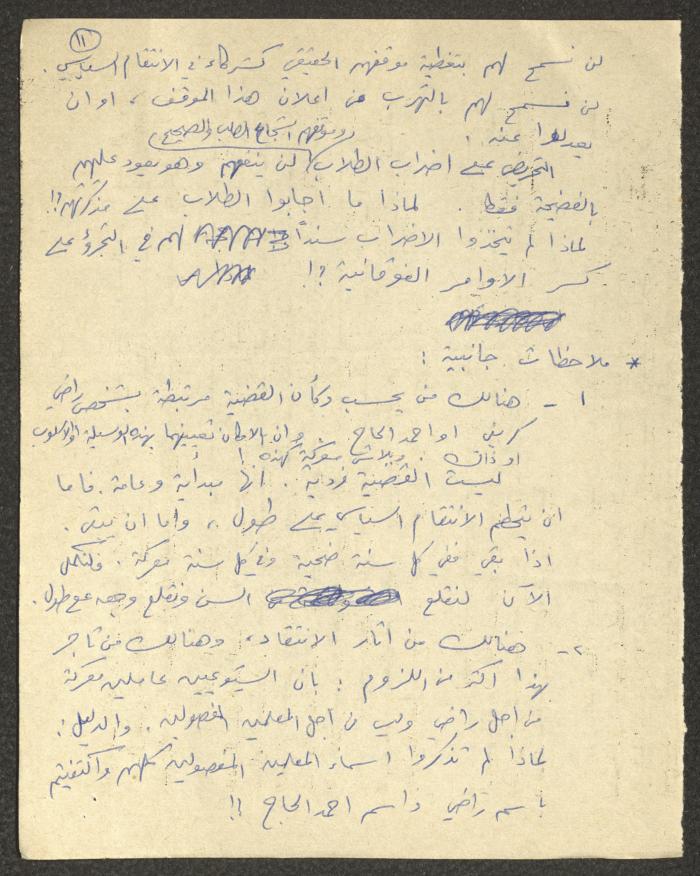 ١١
لن نسمح لهم بتغطية موقفهم الحقيقي كشركاء في الانتقام السياسي.
لن نسمح لهم بالتهرب من اعلان هذا الموقف، او ان
يعدلوا عنه.
وموقفهم الشجاع الصلب والصحيح
التحريض على اضراب الطلاب لن ينفعهم وهو يعود عليهم
بالفضيحة فقط. لماذا ما اجابوا الطلاب على مذكرتهم؟!
لماذا لم يتخذوا الاضراب سنداً لهم في التجرؤ على
كسر الاوامر الفوقانية؟!
* ملاحظات جانبية:
١ - هنالك من يحسب وكأن القضية مرتبطة بشخص راضي
كريني او احمد الحاج. وان الامكان تعيينهما بهذه الوسيلة او الاسلوب
او ذاك. وبلاش معركة كهذه!
ليست القضية فردية. انها مبدأية وعامة. فاما
ان يتحطم الانتقام السياسي على طول، واما ان يبقى.
اذا بقي ففي كل سنة ضحية وفي كل سنة معركة. ولتكن
الآن لنقلع السن ونقلع وجعه على طول.
٢ - هنالك من اثار الانتقاد، وهنالك من تاجر
بهذا اكثر من اللزوم: بان الشيوعيين عاملين معركة
من اجل راضي وليس من اجل المعلمين المفصولين. والدليل:
لماذا لم تذكروا اسماء المعلمين المفصولين كلهم واكتفيتم
باسم راضي واسم احمد الحاج؟!